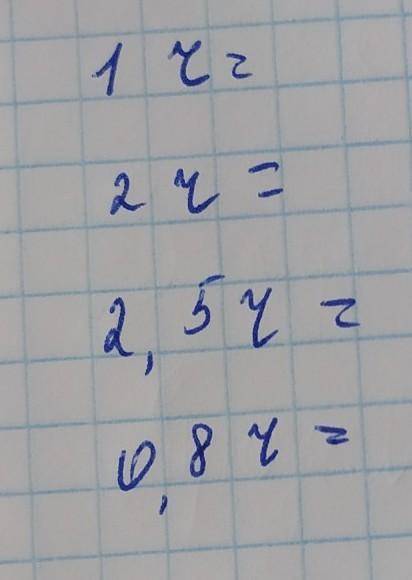 1 ч =
2 ч =
2,5 ч =
0,8 ч =